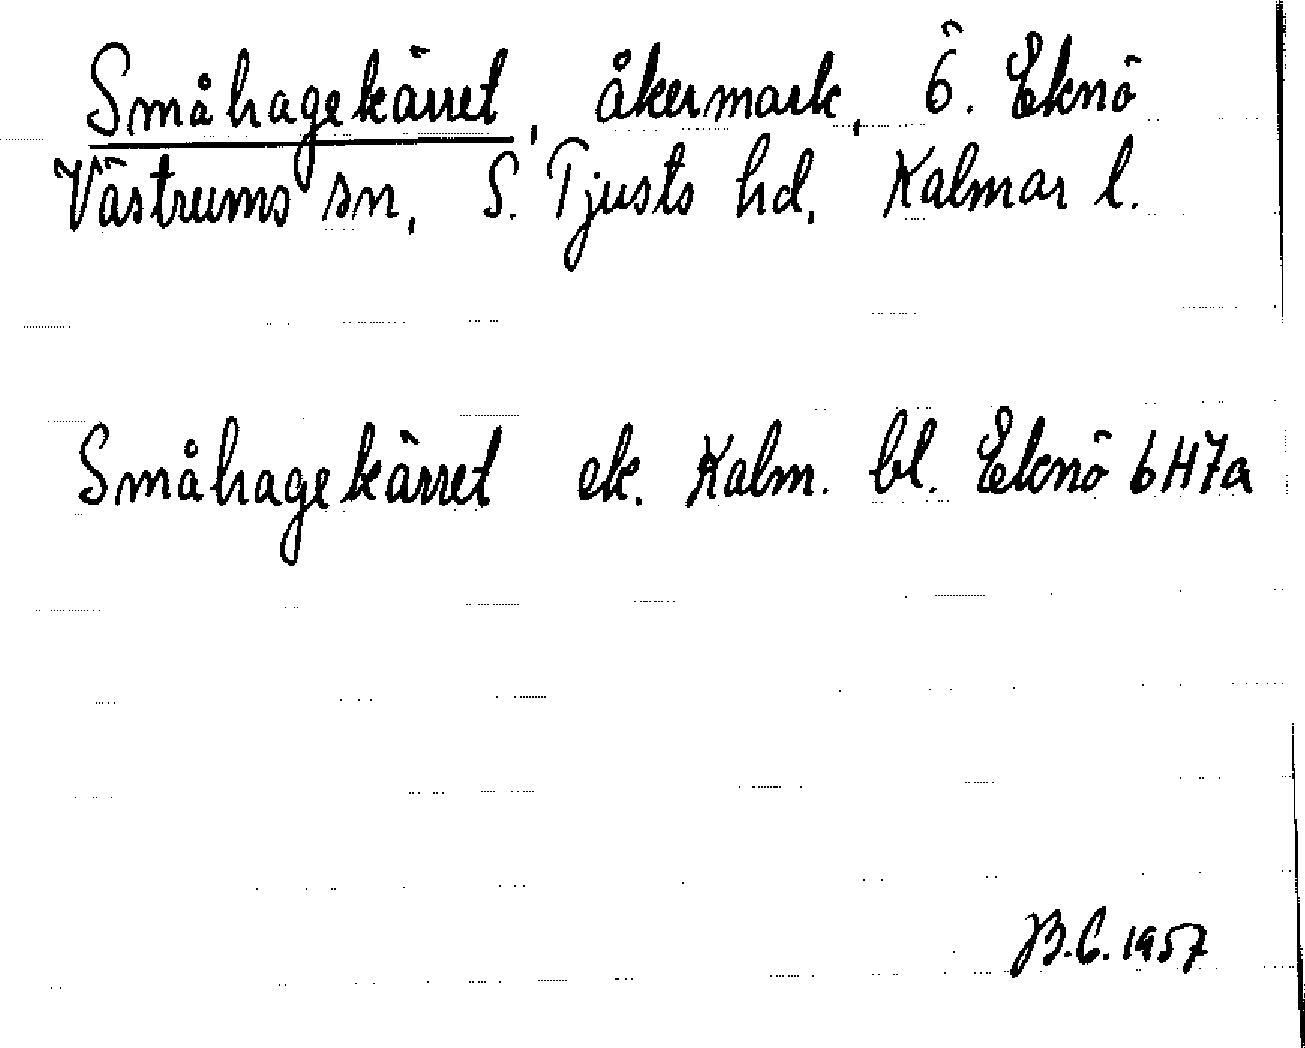 Småhagekärret, åkermark, Ö. Eknö
Västrums sn, S. Tjusts hd, Kalmar l.
Småhagekärret ek. Kalm. bl. Eknö 6H7a
B.C. 1957